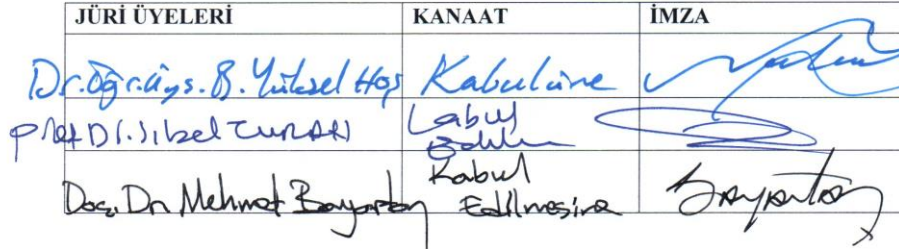 JÜRİ ÜYELERİ KANAAT İMZA
Dr. Öğr. Üys. B. Yüksel Hoş Kabulüne
Prof Dr. Sibel TURAN Kabul
Doç. Dr. Mehmet Bayartan Kabul Edilmesine Bayartan